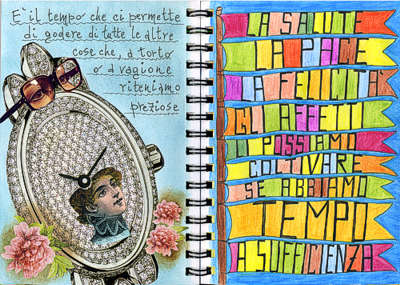 E' il tempo che ci permette
di godere di tutte le altre
cose che, a torto
o a ragione
riteniamo
preziose
LA SALUTE
LA PACE
LA FELICITÀ
GLI AFFETTI
LI POSSIAMO
COLTIVARE
SE ABBIAMO
TEMPO
A SUFFICIENZA